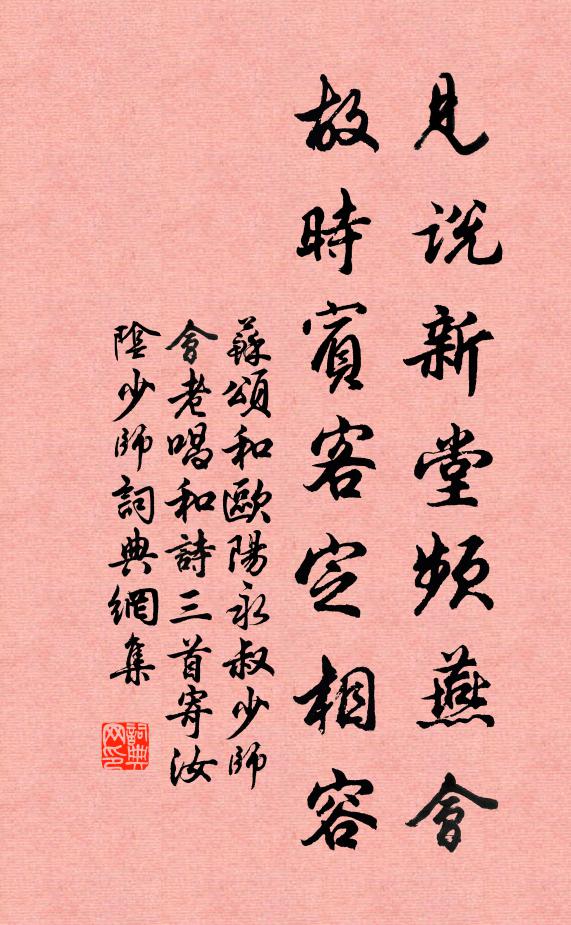 見説新堂頻燕會
故時賓客定相容
蘇頌和歐陽永叔少師
會老唱和詩三首寄汝
陰少師詞典網集
詞典网印